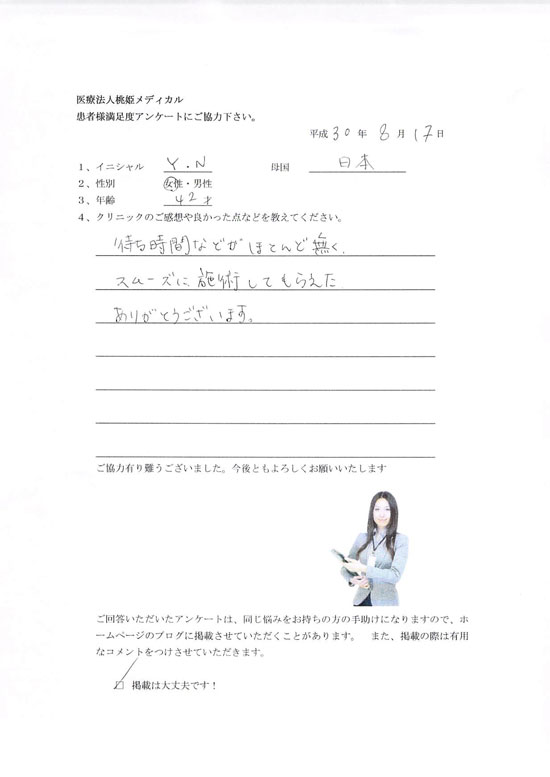 医療法人桃姫メディカル
患者様満足度アンケートにご協力下さい。
平成 30 年 8 月 17 日
1、イニシャル Y.N 母国 日本
2、性別 女性・男性
3、年齢 42才
4、クリニックのご感想や良かった点などを教えてください。
待ち時間などがほとんど無く、
スムーズに施術してもらえた
ありがとうございます。
ご協力有り難うございました。今後ともよろしくお願いいたします
ご回答いただいたアンケートは、同じ悩みをお持ちの方の手助けになりますので、ホ
ームページのブログに掲載させていただくことがあります。 また、掲載の際は有用
なコメントをつけさせていただきます。
□ 掲載は大丈夫です！